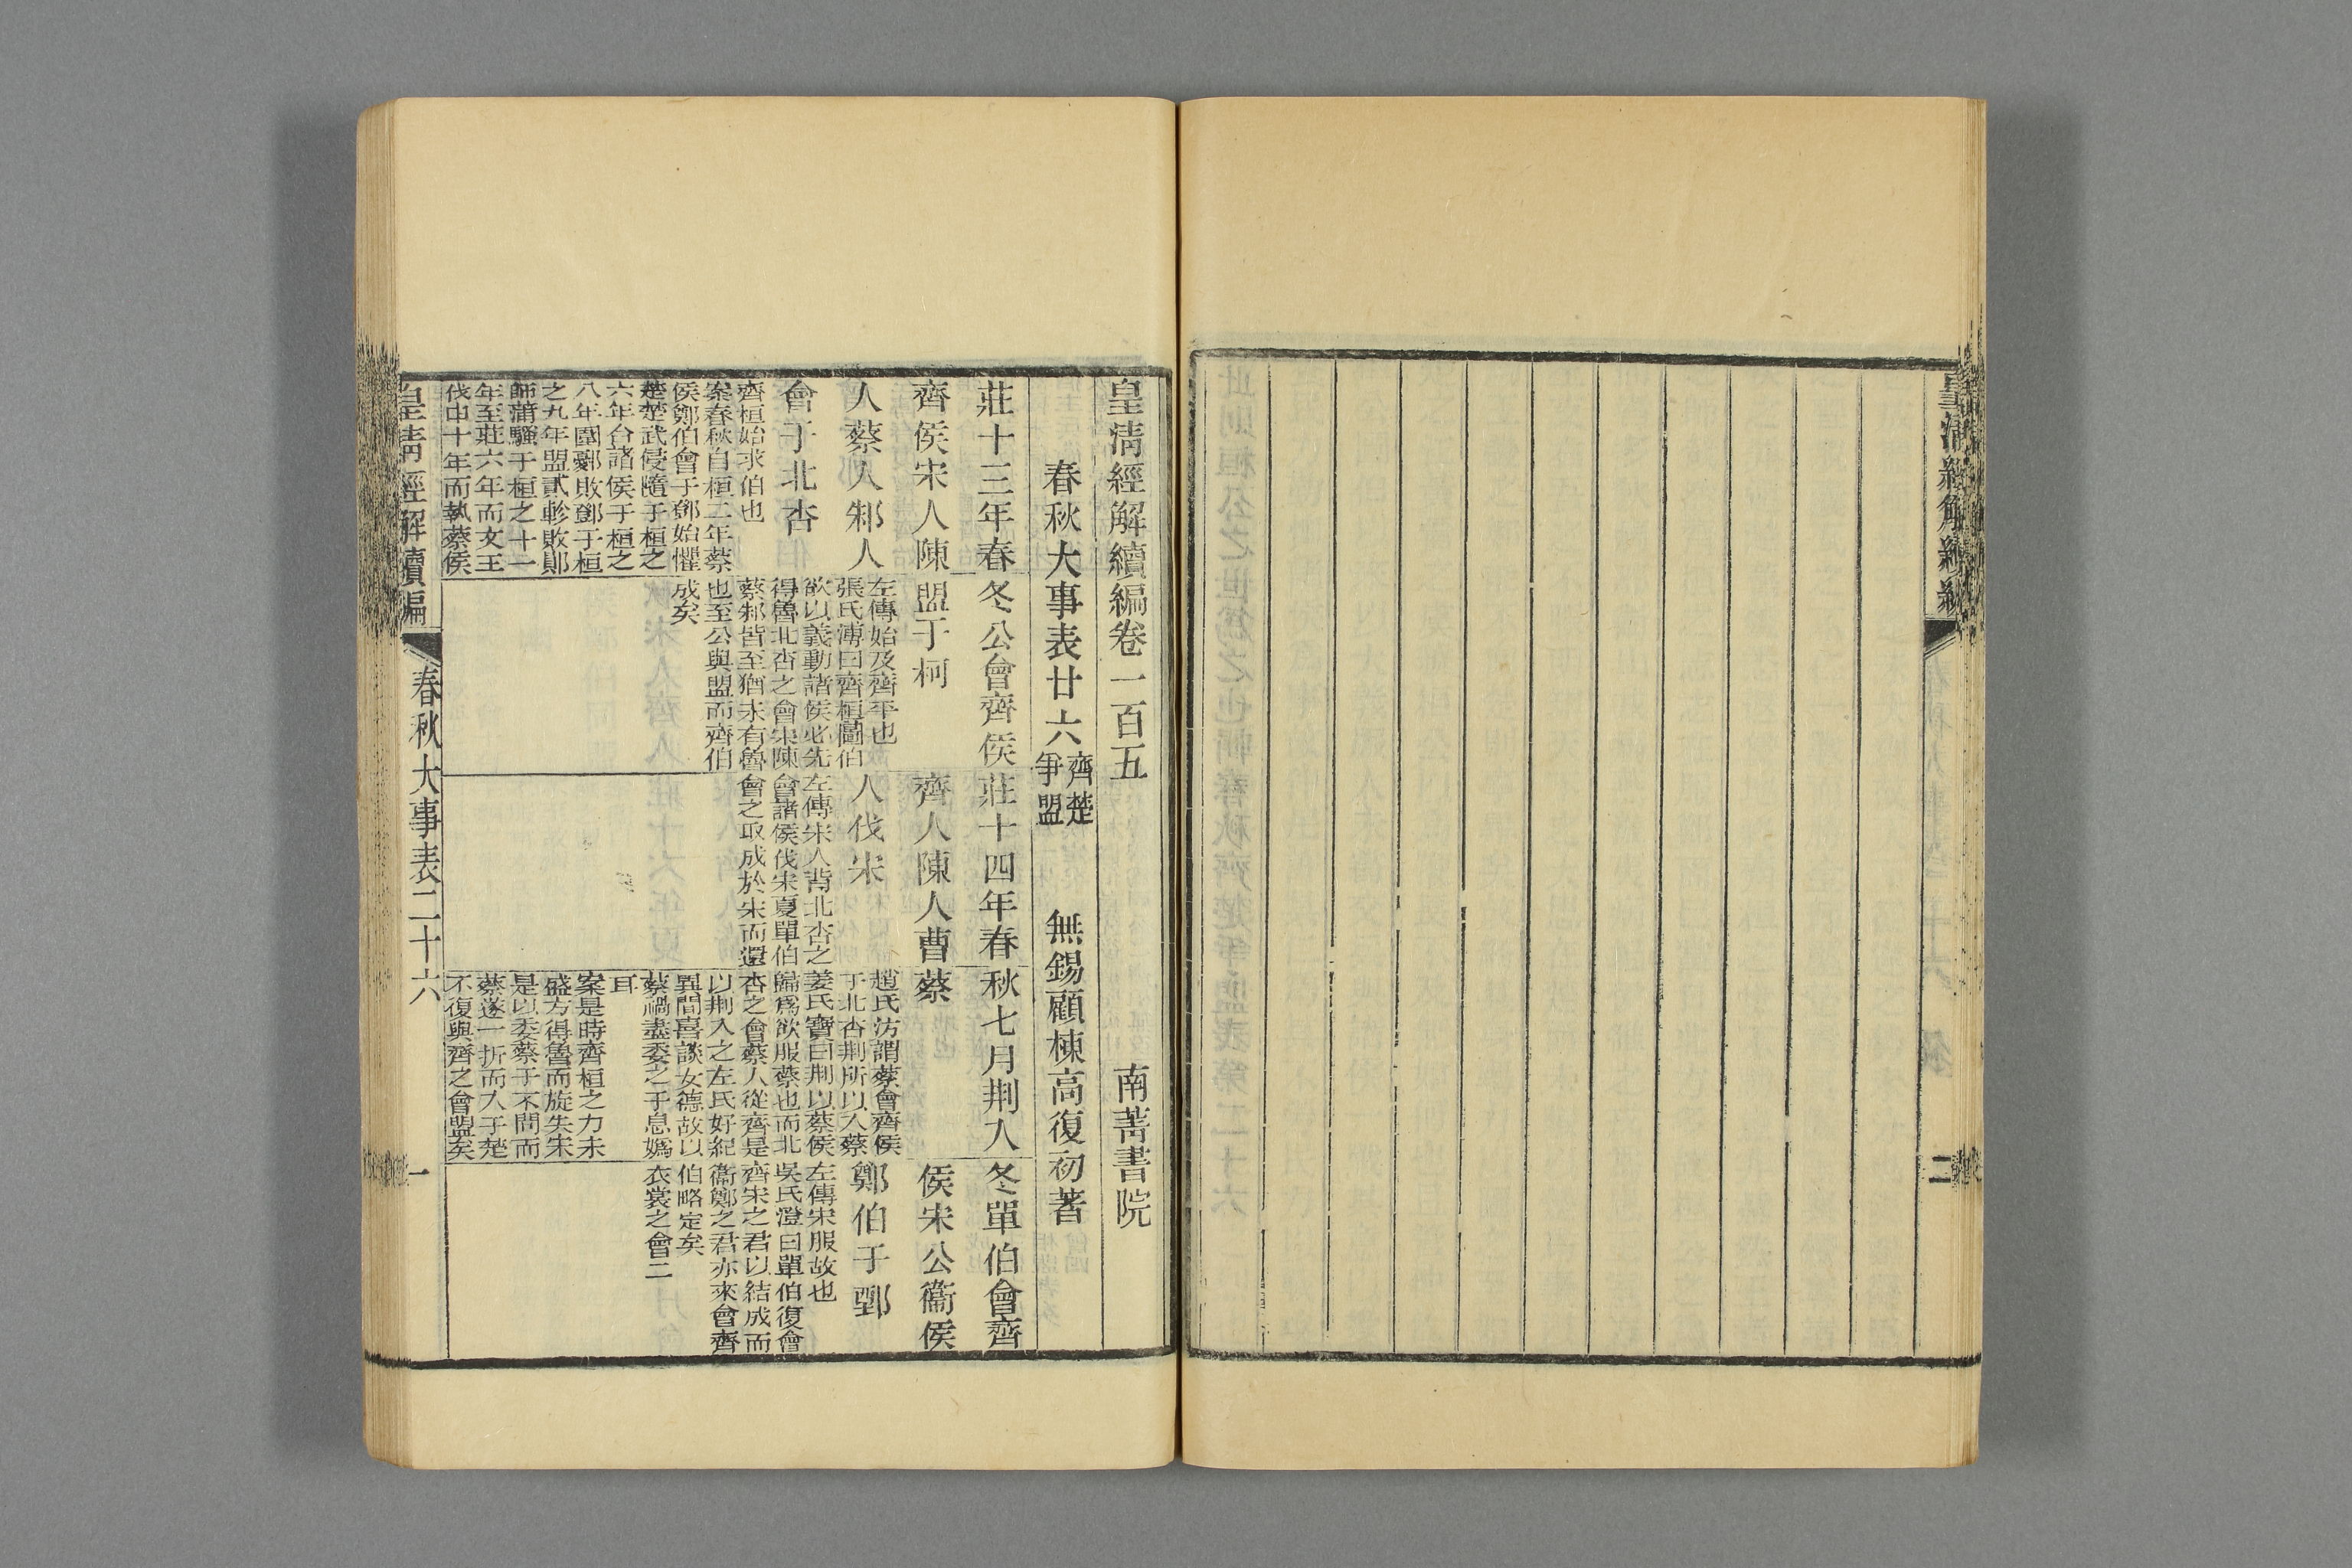 皇清經解續編
二
皇清經解續編卷一百五
南菁書院
春秋大事表廿六
齊楚
爭盟
無錫顧棟高復初著
莊十三年春
齊侯宋人陳
人蔡人邾人
會于北杏
齊桓始求伯也
案春秋自桓二年蔡
侯鄭伯會于鄧始懼
楚楚武侵隨于桓之
六年合諸侯于桓之
八年圍鄾敗鄧于桓
之九年盟貳軫敗鄖
師蒲騷于桓之十一
年至莊六年而文王
伐申十年而執蔡侯
冬公會齊侯
盟于柯
左傳始及齊平也
張氏溥曰齊桓圖伯
欲以義動諸侯必先
得魯北杏之會宋陳
蔡邾皆至猶未有魯
也至公與盟而齊伯
成矣
莊十四年春
齊人陳人曹
人伐宋
左傳宋人背北杏之
會諸侯伐宋夏單伯
會之取成於宋而還
秋七月荆入
蔡
趙氏汸謂蔡會齊侯
于北杏荆所以入蔡
姜氏寶曰荆以蔡侯
歸爲欲服蔡也而北
杏之會蔡人從齊是
以荆入之左氏好紀
異間喜談女德故以
蔡禍盡委之于息媯
耳
案是時齊桓之力未
盛方得魯而旋失宋
是以委蔡于不問而
蔡遂一折而入于楚
不復與齊之會盟矣
冬單伯會齊
侯宋公衞侯
鄭伯于鄄
左傳宋服故也
吳氏澄曰單伯復會
齊宋之君以結成而
衞鄭之君亦來會齊
伯略定矣
衣裳之會二
皇清經解續編
春秋大事表二十六
一